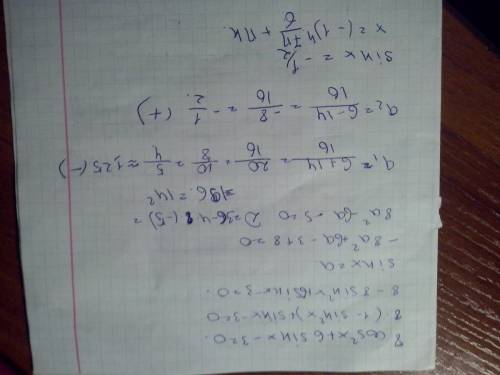 8 cos²x + 6 sinx - 3 = 0.
8 · (1 - sin²x) + sinx - 3 = 0
8 - 8 sin²x + 6 sinx - 3 = 0.
sinx = a
- 8a² + 6a - 3 + 8 = 0
8a² - 6a - 5 = 0 D = 36 - 4 · 8 · (-5) =
= 196 = 14²
a₁ = 6+14/16 = 20/16 = 10/8 = 5/4 ≈ 1,25 (-)
a₂ = 6-14/16 = -8/16 = - 1/2. (+)
sinx = - 1/2
x = (-1)ⁿ 7π/6 + πk.